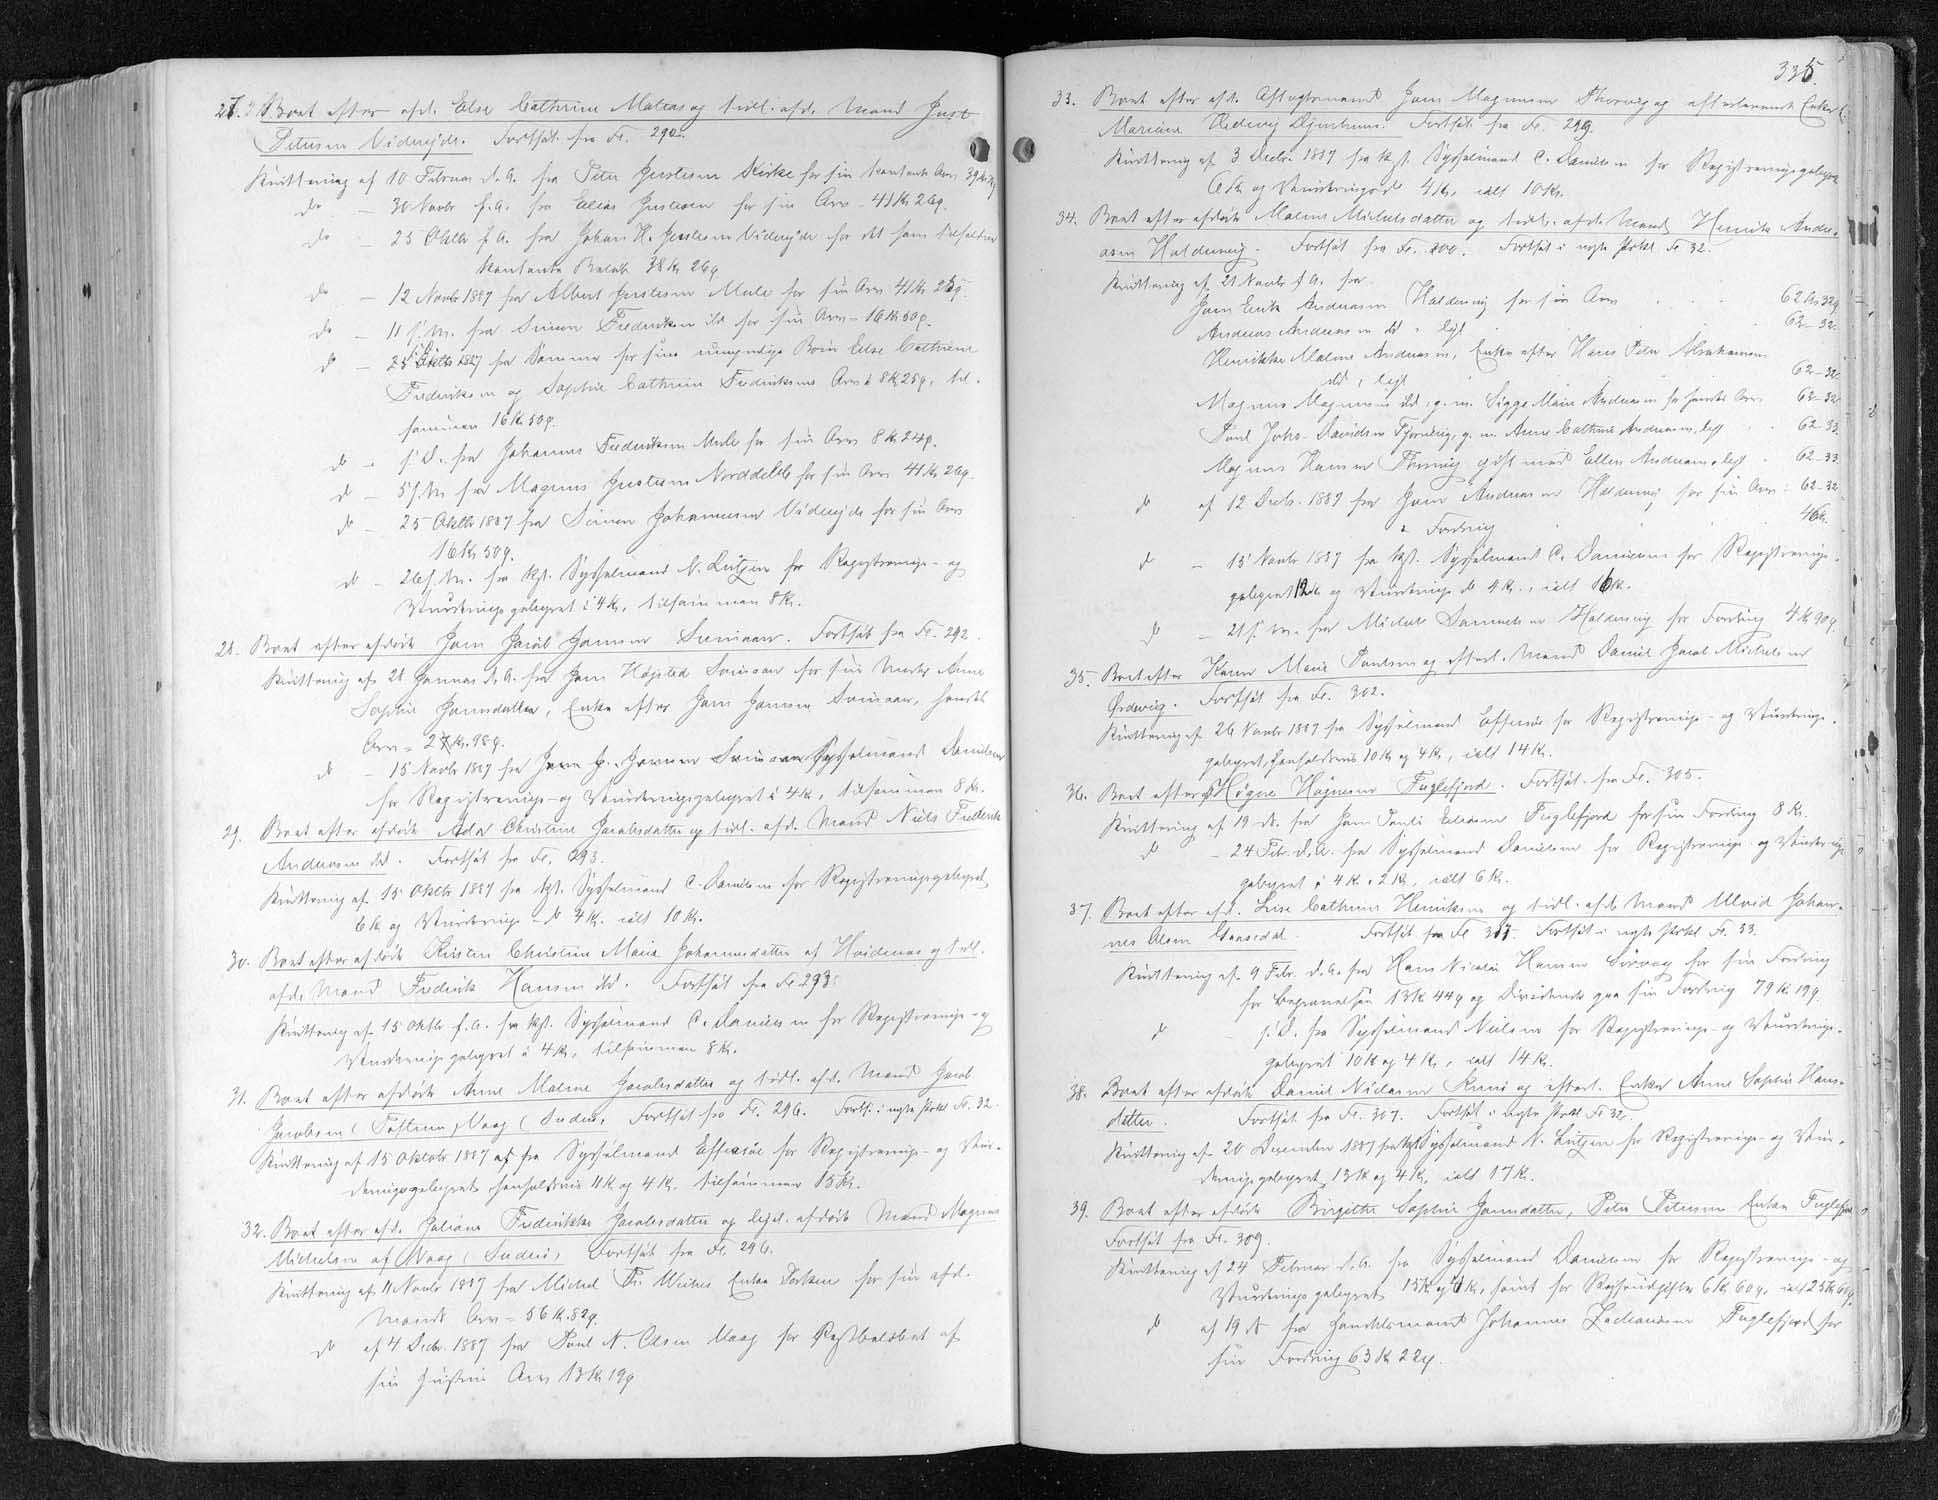 27. Boet efter afd. Else Cathrine Matras og tidl. afd. Mand Just
Petersen Viderejde. Fortsat fra Fo. 290.
Kvittering af 10 Februar d. A. fra Peter Justesen Kirke for sin kontante Arv 39 Kr
do — 30 Novbr f. A. fra Elias Justesen for sin Arv - 41 Kr 26 ø.
do — 25 Oktbr f. A. fra Johan H. Justesen Viderejde for det ham tilfaldne
kontante Beløb 38 Kr 26 ø
do — 12 Novbr 1887 fra Albert Justesen Mule for sin Arv 41 Kr. 25 ø.
do — 11 s. M. fra Simon Frederiksen ibd for sin Arv - 16 Kr 50 ø.
do — 25 Oktbr 1887 fra Samme for sine umyndige Børn Else Cathrine
Frederiksen og Sophie Cathrine Frederiksens Arv à 8 K 25 ø, til-
sammen 16 Kr 50 ø.
do - s. D. fra Johannes Frederiksen Mule for sin Arv 8 Kr. 24 ø.
do — 5 s. M. fra Magnus Justesen Norddeble for sin Arv 41 Kr. 26 ø.
do — 25 Oktbr 1887 fra Simon Johannesen Viderejde for sin Arv
16 Kr 50 ø.
do — 26 s. M. fra kst. Sysselmand N. Lützen for Registrerings- og
Vurderingsgebyret à 4 Kr., tilsammen 8 Kr.
28. Boet efter afdøde Jens Jacob Jensen Sumbø. Fortsat fra Fo. 292.
Kvittering af 28 Januar d. A. fra Jens Højsted for sin Moder Anne
Sophie Jensdatter, Enke efter Jens Jensen, hendes
Arv = 27 Kr. 98 ø.
do — 15 Novbr 1887 fra Sysselmand Danielsen
for Registrerings- og Vurderingsgebyret à 4 Kr., tilsammen 8 Kr.
29. Boet efter afdøde Christine Jacobsdatter og tidl. afd. Mand Niels Frederik
Andreasen ibd. Fortsat fra Fo. 293.
Kvittering af 15 Oktbr 1887 fra kst. Sysselmand C. Danielsen for Registreringsgebyret
6 Kr og Vurderings- do 4 Kr. ialt 10 Kr.
30. Boet efter afdøde Kirsten Christine Marie Johannesdatter af Hvidenæs og tidl.
afd. Mand Frederik Hansen ibd. Fortsat fra Fo. 293.
Kvittering af 15 Oktbr f. A. fra kst. Sysselmand C. Danielsen for Registrerings- og
Vurderingsgebyret à 4 Kr., tilsammen 8 Kr.
31. Boet efter afdøde Anne Malene Jacobsdatter og tidl. afd. Mand Jacob
Jacobsen Vaag (Suderø, Fortsat fra Fo. 296. Forts. i nyte Prtkl. Fo. 32.
Kvittering af 15 Oktobr 1887 fra Sysselmand Effersøe for Registrerings- og Vur-
deringsgebyret, henholdsvis 11 Kr og 4 Kr. tilsammen 15 Kr.
32. Boet efter afdøde Juliane Frederikke Jacobsdatter og ligel. afdøde Mand Magnus
Michelsen af Vaag (Suderø) Fortsat fra Fo. 296.
Kvittering af 11 Novbr 1887 fra Michel Fr. Enke for sin afd.
Mands Arv = 56 Kr. 82 ø.
do af 4 Decbr. 1887 fra Poul N. Olsen Vaag for Restbeløbet af
sin Hustrus Arv 13 Kr 19 ø
335.
33. Boet efter afd. Aftægtsmand Jens Magnusen Thorvig og efterlevende Enke
Mariane Hedevig Djurhuus. Fortsat fra Fo. 299.
Kvittering af 3 Decbr. 1887 fra kst. Sysselmand C. Danielsen for Registreringsgebyret
6 Kr og Vurderings do 4 Kr, ialt 10 Kr.
34. Boet efter afdøde Malene Michelsdatter og tidl. afd. Mand Henrik Andre-
asen Haldersvig. Fortsat fra Fo. 300. Fortsat i nyte Prtkl. Fo 32.
Kvittering af 21 Novbr f A. fra
Jens Erik Andreasen Haldersvig for sin Arv . . . 62 Kr 32 ø
Andreas Andreasen ibd " ligl. 62 - 32 -
Henrikke Malene Andreasen, Enke efter Hans Peter Abrahamsen
ibd, ligl 62 - 32
Magnus Magnusen ibd, g. m. Sigge Marie Andreasen for hendes Arv 62 - 32
Poul Johs. Davidsen Tjørnevig, g. m. Anne Cathrine Andreasen, ligl . 62 - 33
Magnus Hansen gift med Ellen Andreasen, ligl . 62 - 33
do af 12 Decb. 1887 fra Jens Andreasen Haldersvig for sin Arv = 62 - 32
" Fordring . 46 Kr.
do — 15 Novbr 1887 fra kst. Sysselmand C. Danielsen for Registrerings-
gebyret 12 Kr og Vurderings do 4 Kr., ialt 16 Kr.
do — 21 s. M. fra Michel Samuelsen Haldersvig for Fordring 4 Kr 90 ø.
35. Boet efter Karen Marie Poulsen og efterl. Mand Daniel Jacob Michelsen
Ørdevig. Fortsat fra Fo. 302.
Kvittering af 26 Novbr 1887 fra Sysselmand Effersøe for Registrerings- og Vurderings-
gebyret, henholdsvis 10 Kr og 4 Kr, ialt 14 Kr.
36. Boet efter Høgne Høgnesen Fuglefjord. Fortsat fra Fo. 305.
Kvittering af 19 ds. fra Jens Pauli Fuglefjord for sin Fordring 8 Kr.
do - 24 Febr. d. A. fra Sysselmand Danielsen for Registrerings- og Vurderings-
gebyret à 4 Kr. 2 Kr, ialt 6 Kr.
37. Boet efter afd. Lise Cathrine Henriksen og tidl. afd. Mand Johan-
nes Olsen Gaasedal. Fortsat fra Fo 307. Fortsat i nyte Prtkl. Fo. 33.
Kvittering af 9 Febr. d. A. fra Hans Nicolai Hansen Sørvaag for sin Fordring
for Begravelsen 13 Kr 44 ø og Dividende paa sin Fordring 79 Kr 19 ø.
do - s. D. fra Sysselmand Nielsen for Registrerings- og Vurderings-
gebyret 10 Kr og 4 Kr, ialt 14 Kr.
38. Boet efter afdøde Daniel Niclasen Kunø og efterl. Enke Anne Sophie Hans-
datter. Fortsat fra Fo. 307. Fortsat i nyte Prtkl Fo 32.
Kvittering af 20 December 1887 fra kst Sysselmand N. Lützen for Registrerings- og Vur-
deringsgebyret, 13 Kr og 4 Kr, ialt 17 Kr.
39. Boet efter afdøde Birgithe Sophie Jensdatter, Peter Petersens Enke Fuglefjord
Fortsat fra Fo. 309.
Kvittering af 24 Februar d. A. fra Sysselmand Danielsen for Registrerings- og
Vurderingsgebyret 15 Kr og 4 Kr, samt for Rejseudgifter 6 Kr 60 ø, ialt 25 Kr 60 ø.
do af 19 ds fra Handelsmand Johannes Zachariasen Fuglefjord for
sin Fordring 63 Kr 22 ø.